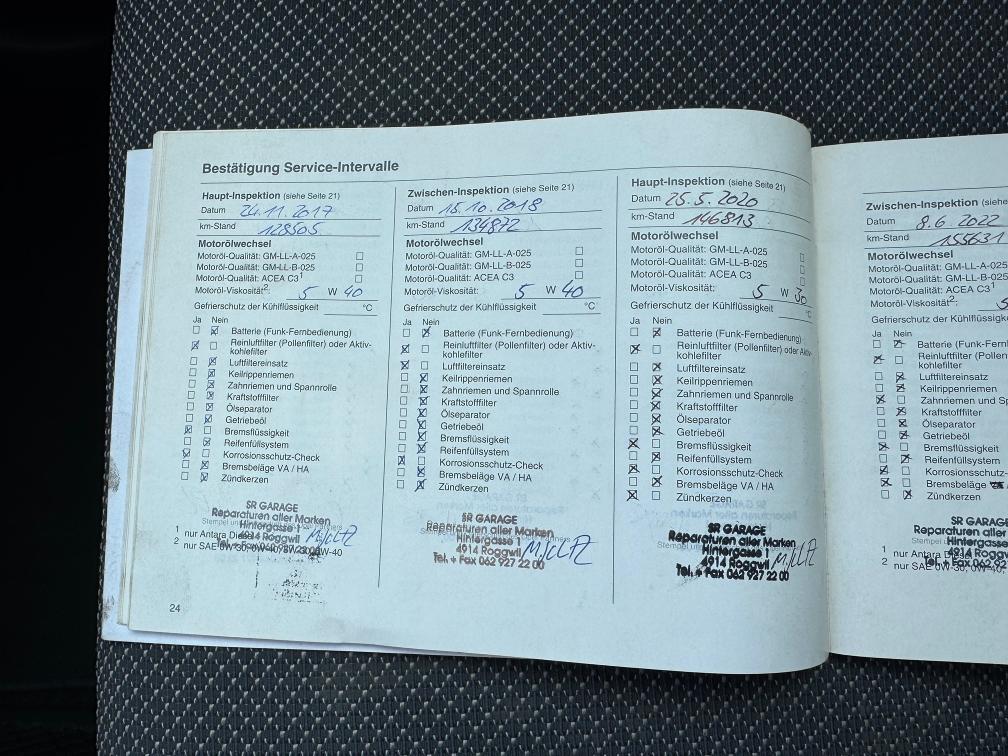 Bestätigung Service-Intervalle
Haupt-Inspektion (siehe Seite 21)
Datum 24.11.2017
km-Stand 128505
Motorölwechsel
Motoröl-Qualität: GM-LL-A-025
Motoröl-Qualität: GM-LL-B-025
Motoröl-Qualität: ACEA C3¹
Motoröl-Viskosität²: 5 W 40
Gefrierschutz der Kühlflüssigkeit °C
Ja Nein
Batterie (Funk-Fernbedienung)
Reinluftfilter (Pollenfilter) oder Aktiv-
kohlefilter
Luftfiltereinsatz
Keilrippenriemen
Zahnriemen und Spannrolle
Kraftstofffilter
Ölseparator
Getriebeöl
Bremsflüssigkeit
Reifenfüllsystem
Korrosionsschutz-Check
Bremsbeläge VA / HA
Zündkerzen
SR GARAGE
Reparaturen aller Marken
Hintergasse 1
4914 Roggwil
1 nur Antara
2 nur SAE
24
Zwischen-Inspektion (siehe Seite 21)
Datum 15.10.2018
km-Stand 134872
Motorölwechsel
Motoröl-Qualität: GM-LL-A-025
Motoröl-Qualität: GM-LL-B-025
Motoröl-Qualität: ACEA C3
Motoröl-Viskosität: 5 W 40
Gefrierschutz der Kühlflüssigkeit °C
Ja Nein
Batterie (Funk-Fernbedienung)
Reinluftfilter (Pollenfilter) oder Aktiv-
kohlefilter
Luftfiltereinsatz
Keilrippenriemen
Zahnriemen und Spannrolle
Kraftstofffilter
Ölseparator
Getriebeöl
Bremsflüssigkeit
Reifenfüllsystem
Korrosionsschutz-Check
Bremsbeläge VA / HA
Zündkerzen
SR GARAGE
Reparaturen aller Marken
Hintergasse 1
4914 Roggwil
Tel. + Fax 062 927 22 00
Haupt-Inspektion (siehe Seite 21)
Datum 25.5.2020
km-Stand 146813
Motorölwechsel
Motoröl-Qualität: GM-LL-A-025
Motoröl-Qualität: GM-LL-B-025
Motoröl-Qualität: ACEA C3
Motoröl-Viskosität: 5 W 30
Gefrierschutz der Kühlflüssigkeit °C
Ja Nein
Batterie (Funk-Fernbedienung)
Reinluftfilter (Pollenfilter) oder Aktiv-
kohlefilter
Luftfiltereinsatz
Keilrippenriemen
Zahnriemen und Spannrolle
Kraftstofffilter
Ölseparator
Getriebeöl
Bremsflüssigkeit
Reifenfüllsystem
Korrosionsschutz-Check
Bremsbeläge VA / HA
Zündkerzen
SR GARAGE
Reparaturen aller Marken
Hintergasse 1
4914 Roggwil
Tel. + Fax 062 927 22 00
Zwischen-Inspektion (siehe
Datum 8.6.2022
km-Stand 155631
Motorölwechsel
Motoröl-Qualität: GM-LL-A-025
Motoröl-Qualität: GM-LL-B-025
Motoröl-Qualität: ACEA C3¹
Motoröl-Viskosität²: 5
Gefrierschutz der Kühlflüssigkeit
Ja Nein
Batterie (Funk-Fern
Reinluftfilter (Pollenfilter)
kohlefilter
Luftfiltereinsatz
Keilrippenriemen
Zahnriemen und Sp
Kraftstofffilter
Ölseparator
Getriebeöl
Bremsflüssigkeit
Reifenfüllsystem
Korrosionsschutz-
Bremsbeläge
Zündkerzen
SR GARAGE
Reparaturen aller
Hintergasse
4914 Roggwil
1 nur Antara
2 nur SAE